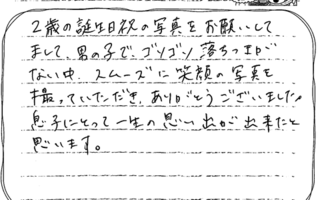 2歳の誕生日祝の写真をお願いして
まして、男の子で、ゴソゴソ落ちつきが
ない中、スムーズに笑顔の写真を
撮っていただき、ありがとうございました。
息子にとって一生の思い出が出来たと
思います。